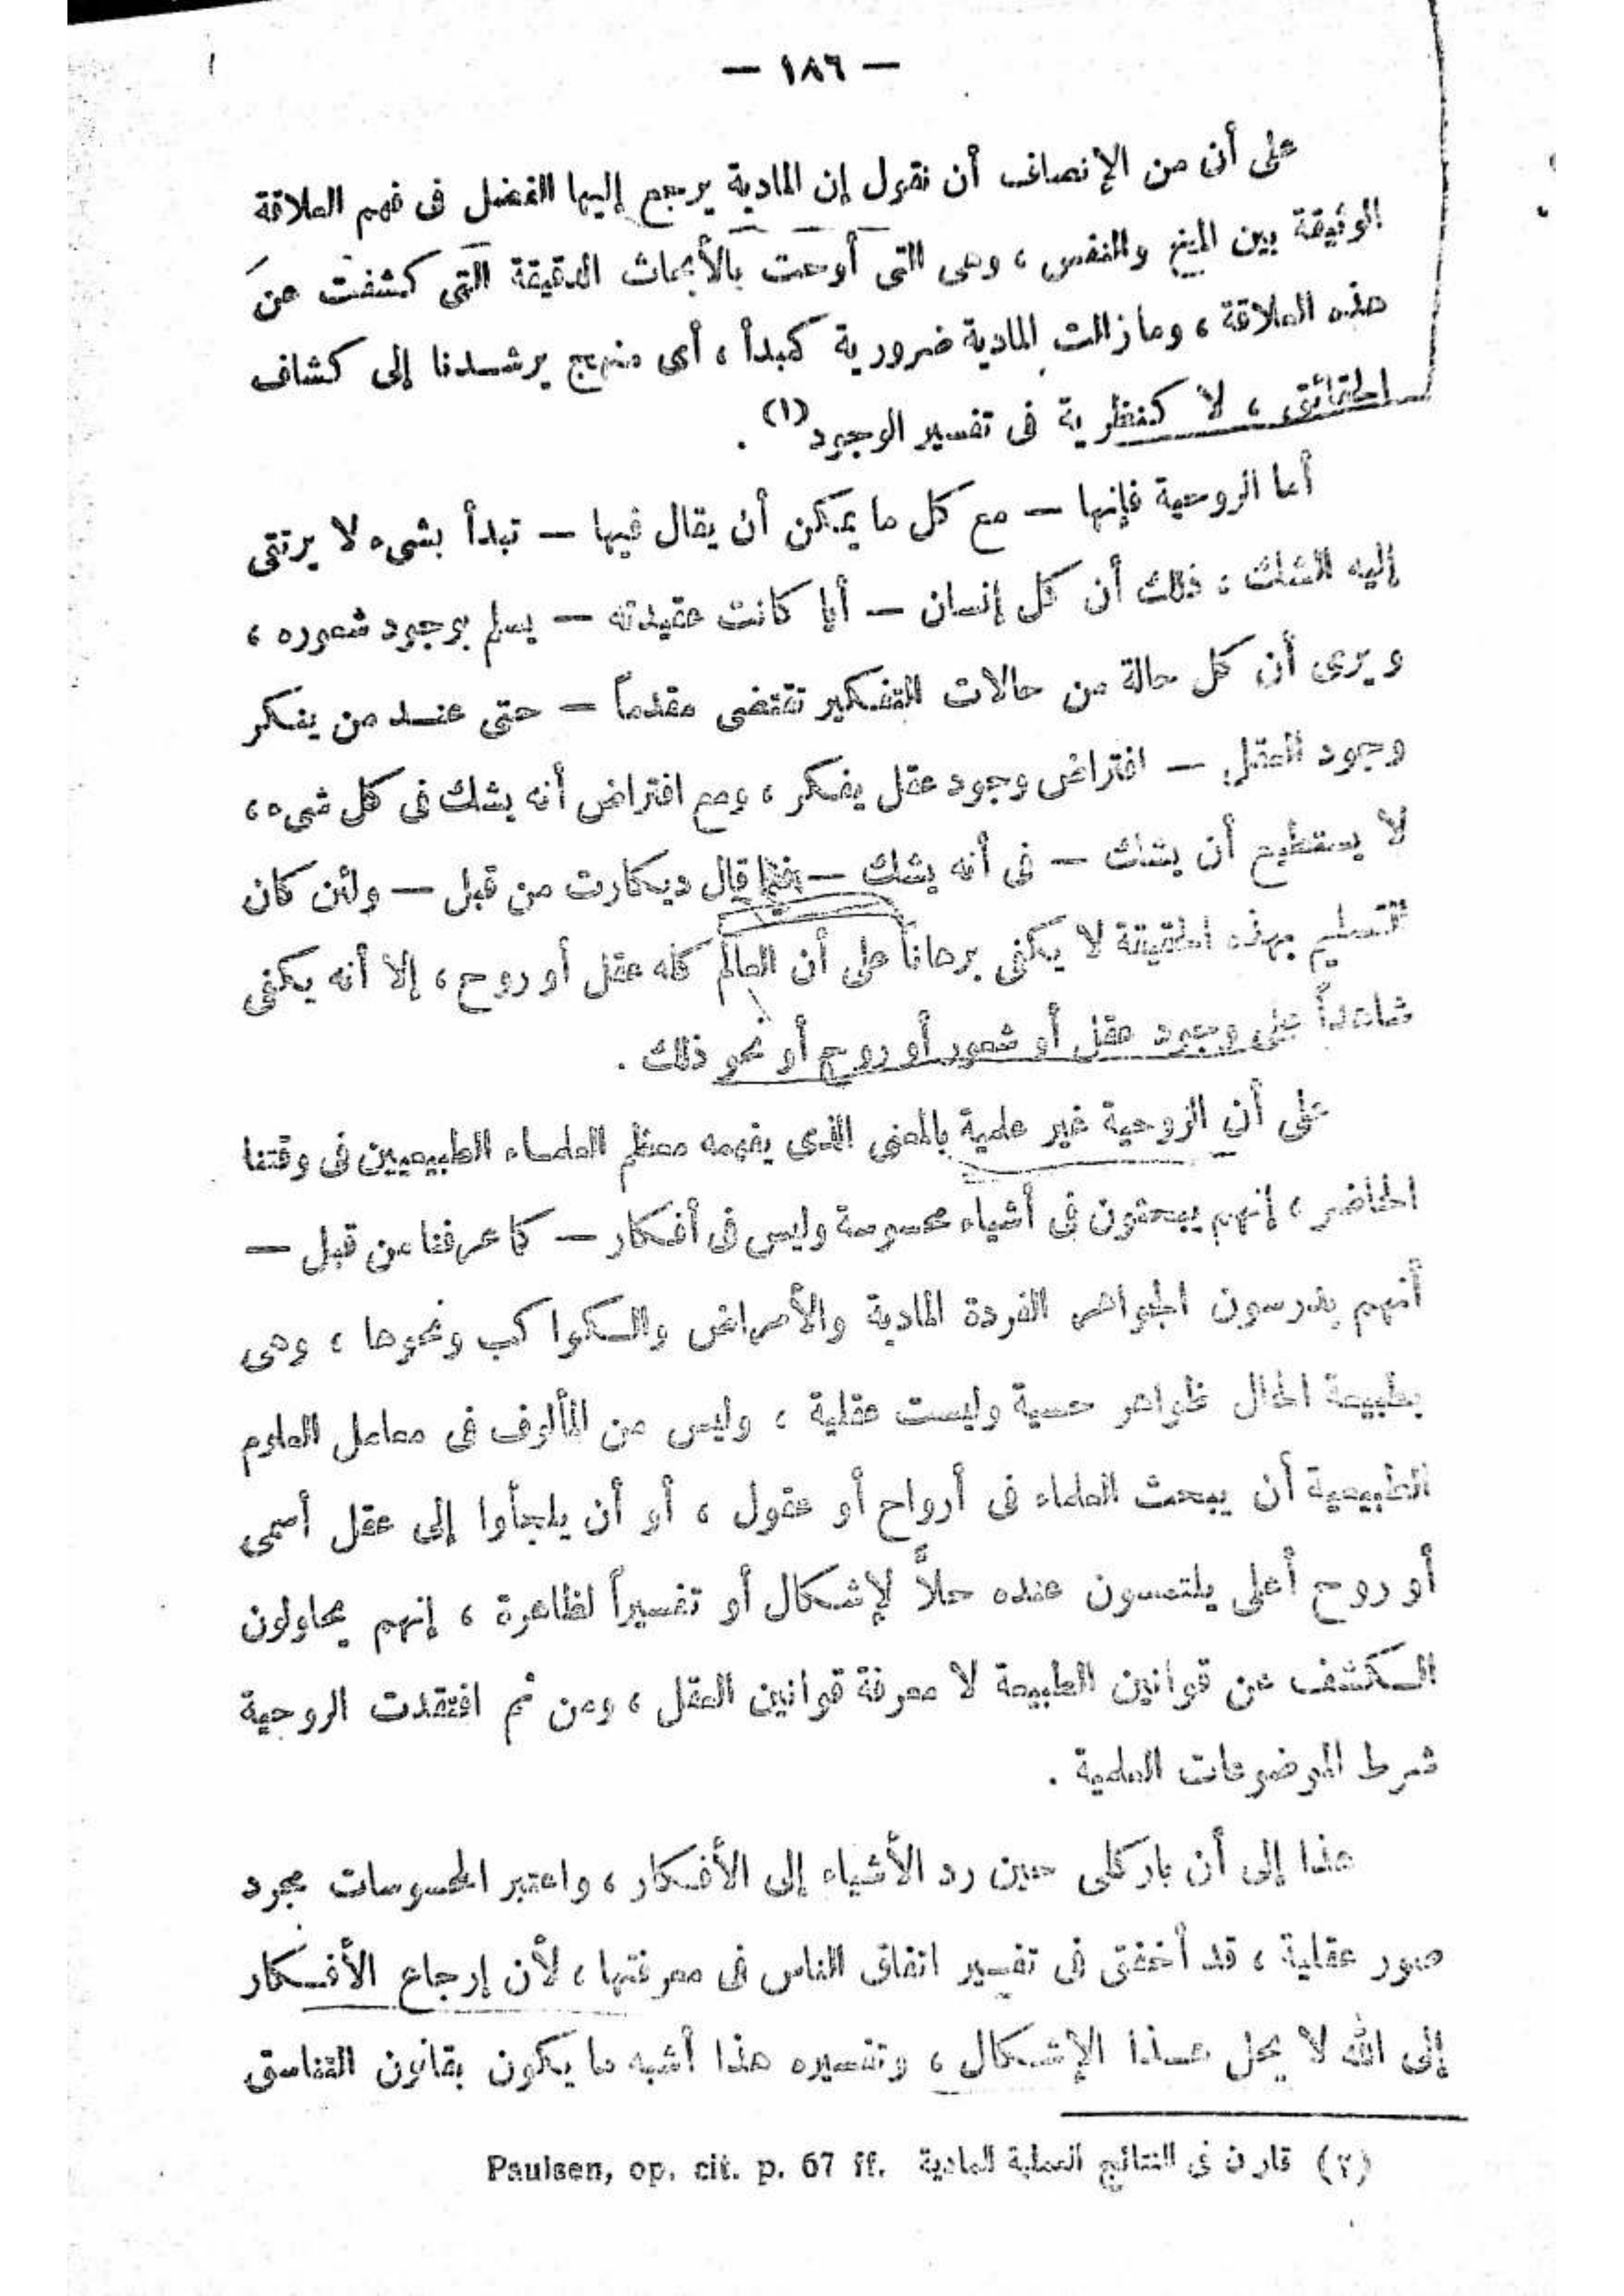 — ١٨٦ —
على أن من الإنصاف أن نقول إن المادية يرجع إليها الفضل فى فهم العلاقة
الوثيقة بين المخ والنفس ، وهى التى أوحت بالأبحاث الدقيقة التى كشفت عن
هذه العلاقة ، وما زالت المادية ضرورية كمبدأ ، أى منهج يرشدنا إلى كشاف
الحقائق ، لا كنظرية فى تفسير الوجود (١) .
أما الروحية فإنها — مع كل ما يمكن أن يقال فيها — تبدأ بشىء لا يرتقى
إليه الشك : ذلك أن كل إنسان — أيا كانت عقيدته — يسلم بوجود شعوره ،
ويرى أن كل حالة من حالات التفكير تقتضى مقدماً — حتى عند من ينكر
وجود العقل — افتراض وجود عقل يفكر ، ومع افتراض أنه يشك فى كل شىء ،
لا يستطيع أن يشك — فى أنه يشك — فيما قال ديكارت من قبل — ولئن كان
التسليم بهذه الحقيقة لا يكفى برهاناً على أن العالم كله عقل أو روح ، إلا أنه يكفى
شاهداً على وجود عقل أو شعور أو روح أو نحو ذلك .
على أن الروحية غير علمية بالمعنى الذى يفهمه معظم العلماء الطبيعيين فى وقتنا
الحاضر ، إنهم يبحثون فى أشياء محسوسة وليس فى أفكار — كما عرفنا من قبل —
أنهم يدرسون الجواهر الفردة المادية والأمراض والكواكب ونحوها ، وهى
بطبيعة الحال ظواهر حسية وليست عقلية ، وليس من المألوف فى معامل العلوم
الطبيعية أن يبحث العلماء فى أرواح أو عقول ، أو أن يلجأوا إلى عقل أسمى
أو روح أعلى يلتمسون عنده حلاً لإشكال أو تفسيراً لظاهرة ، إنهم يحاولون
الكشف عن قوانين الطبيعة لا معرفة قوانين العقل ، ومن ثم افتقدت الروحية
شرط الموضوعات العلمية .
هذا إلى أن باركلى حين رد الأشياء إلى الأفكار ، واعتبر المحسوسات مجرد
صور عقلية ، قد أخفق فى تفسير اتفاق الناس فى معرفتها ، لأن إرجاع الأفكار
إلى الله لا يحل هذا الإشكال ، وتفسيره هذا أشبه ما يكون بقانون التناسق
(٢) قارن فى النتائج العملية للمادية Paulsen, op. cit. p. 67 ff.